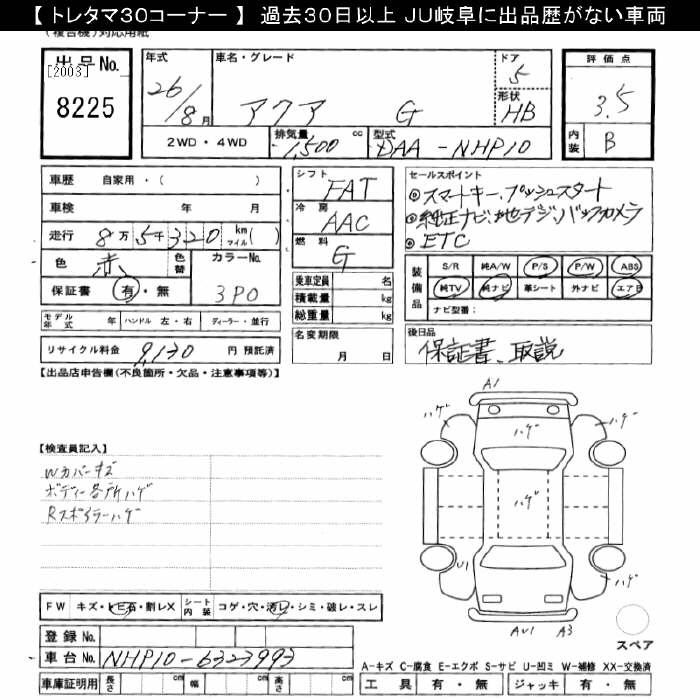 【 トレタマ30コーナー 】 過去30日以上 JU岐阜に出品歴がない車両
(複合機)対応用紙
出品No.
[2003]
8225
年式
26/8月
車名・グレード
アクア G
ドア
5
形状
HB
評価点
3.5
内装
B
2WD・4WD
排気量
1,500 cc
型式
DAA-NHP10
車歴 自家用・( )
車検 年 月
走行 8万5千320 km マイル( )
色 赤 色替
カラーNo.
3P0
保証書 有・無
シフト
FAT
冷房
AAC
燃料
G
乗車定員 名
積載量 kg
総重量 kg
セールスポイント
◎スマートキー、プッシュスタート
◎純正ナビ、地デジ、バックカメラ
◎ETC
装備品
S/R 純A/W P/S P/W ABS
純TV 純ナビ 革シート 外ナビ エアB
ナビ型番:
モデル年式 年 ハンドル 左・右 ディーラー・並行
名変期限
月 日
後日品
保証書、取説
リサイクル料金 9,130 円 預託済
【出品店申告欄(不良箇所・欠品・注意事項等)】
A1
ハゲ
ハゲ
ハゲ
【検査員記入】
Wカバーキズ
ボディー各所ハゲ
Rスポイラーハゲ
ハゲ
U1
ハゲ
AU1 A3
スペア
FW キズ・トビ石・割レX シート内装 コゲ・穴・汚レ・シミ・破レ・スレ
登録No.
車台No. NHP10-6323993
A-キズ C-腐食 E-エクボ S-サビ U-凹ミ W-補修 XX-交換済
車庫証明用 長さ cm 幅 cm 高さ cm
工具 有・無 ジャッキ 有・無